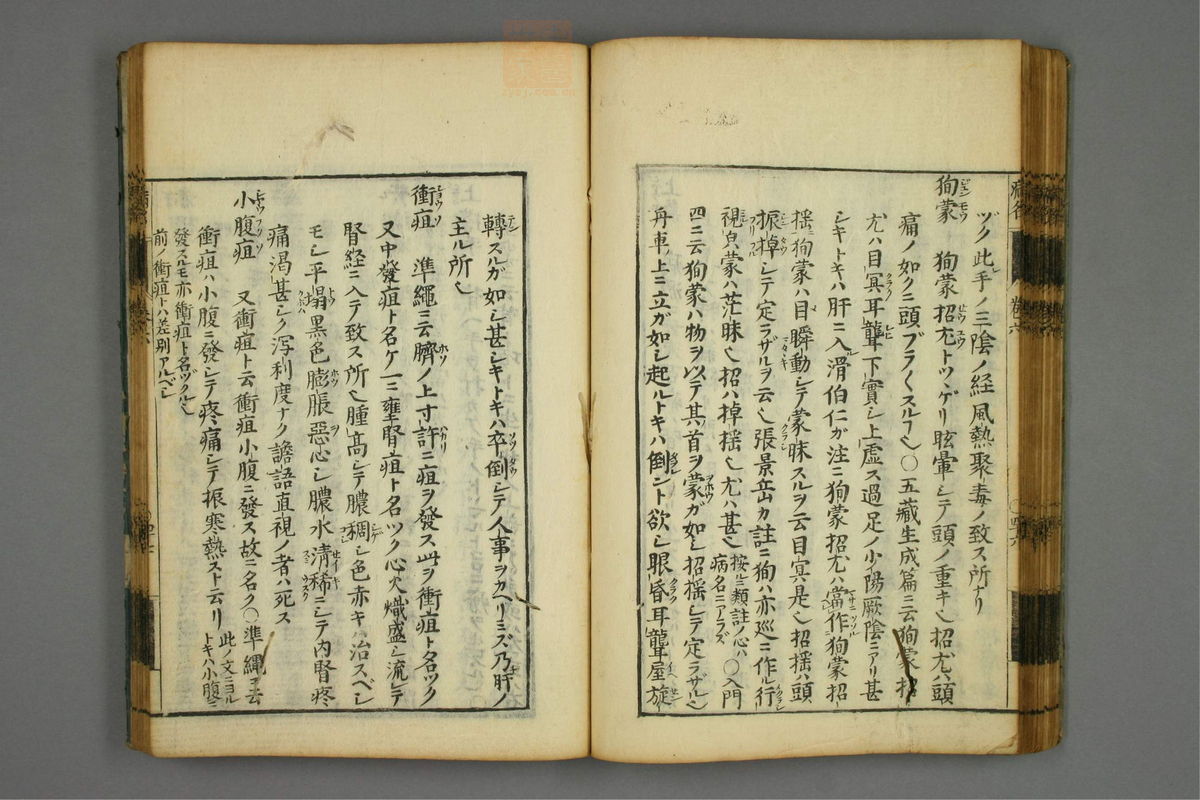 ヅク此手ノ三陰ノ経風熱聚毒ノ致ス所ナリ
狥蒙 狥蒙招尤トツヾケリ眩暈シテノ頭ノ重キ也招尤ハ頭
痛ノ如クニ頭ブラ〱スルフ也〇五藏生成篇ニ云狥蒙招
尤ハ目冥耳聾下實シ上虚ス過足ノ少陽厥陰ニアリ甚
シキトキハ肝ニ入滑伯仁ガ注ニ狥蒙招尤ハ當作狥蒙招
揺狥蒙ハ目瞬動シテ蒙昧スルヲ云目冥是也招揺ハ頭
振掉シテ定ラザルヲ云也張景岳カ註ニ狥ハ亦巡ニ作ル行
視皃蒙ハ茫昧也招ハ掉揺也尤ハ甚也 按ルニ類註ノ心ハ 病名ニアラズ 〇入門
四ニ云狥蒙ハ物ヲ以テ其首ヲ蒙ガ如シ招揺シテ定ラザル也
舟車ノ上ニ立ガ如シ起ルトキハ倒ント欲シ眼昏耳聾屋旋
轉スルガ如シ甚シキトキハ卒倒シテ人事ヲカヘリミズ乃肝ノ
主ル所也
衝疽 準繩ニ云臍ノ上寸許ニ疽ヲ發ス此ヲ衝疽ト名ツク
又中發疽ト名ケ一ニ壅腎疽ト名ツク心火熾盛シ流レテ
腎経ニ入テ致ス所也腫高シテ膿稠シ色赤キハ治スベシ
モシ平塌黒色膨脹惡心シ膿水清稀ニシテ内腎疼
痛渇甚シク泻利度ナク譫語直視ノ者ハ死ス
小腹疽 又衝疽ト云衝疽小腹ニ發ス故ニ名ク〇準繩ヲ云
衝疽ハ小腹ニ發シテ疼痛シテ振寒熱スト云リ 此ノ文ニヨル トキハ小腹ニ
發スルモ亦衝疽ト名ツクル也
前ノ衝疽トハ差別アルベシ
病名 卷六
〇四十六